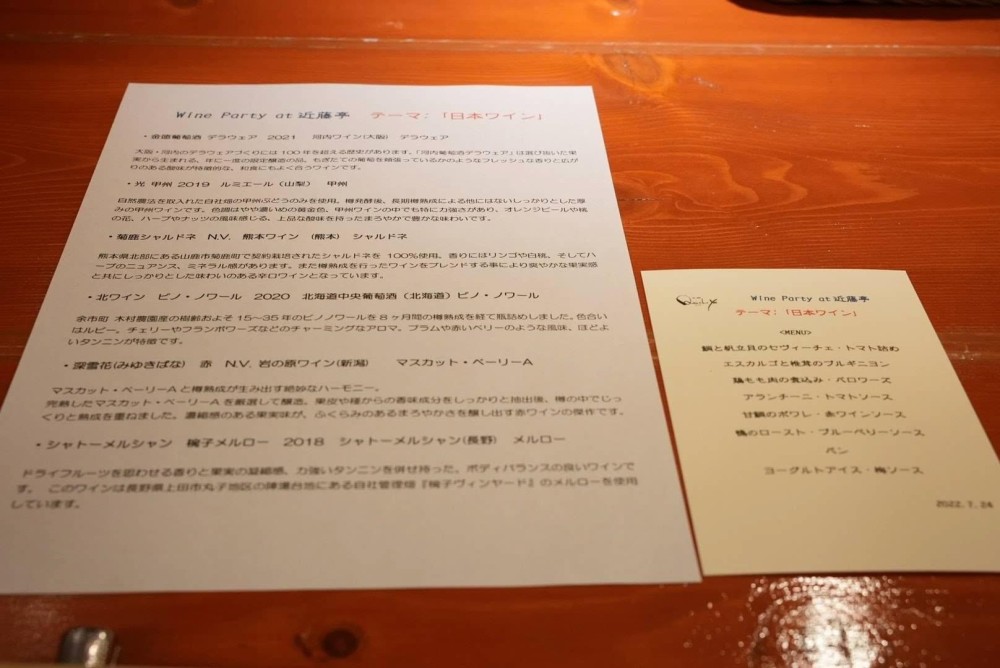 Wine Party at 近藤亭　テーマ：「日本ワイン」
・金徳葡萄酒 デラウェア　2021　河内ワイン(大阪)　デラウェア
大阪・河内のデラウェアづくりには100年を超える歴史があります。「河内葡萄酒デラウェア」は選び抜いた果
実から生まれる、年に一度の限定醸造の品。もぎたての葡萄を頬張っているかのようなフレッシュな香りと広が
りのある酸味が特徴的な、和食にもよく合うワインです。
・光 甲州 2019　ルミエール（山梨）　甲州
自然農法を取入れた自社畑の甲州ぶどうのみを使用。樽発酵後、長期樽熟成による他にはないしっかりとした厚
みの甲州ワインです。色調はやや濃いめの黄金色、甲州ワインの中でも特に力強さがあり、オレンジピールや桃
の花、ハーブやナッツの風味感じる、上品な酸味を持ったまろやかで豊かな味わいです。
・菊鹿シャルドネ　N.V.　熊本ワイン　（熊本）　シャルドネ
熊本県北部にある山鹿市菊鹿町で契約栽培されたシャルドネを 100%使用。香りにはリンゴや白桃、そしてハ
ーブのニュアンス。ミネラル感があります。また樽熟成を行ったワインをブレンドする事により爽やかな果実感
と共にしっかりとした味わいのある辛口ワインとなっています。
・北ワイン　ピノ・ノワール　2020　北海道中央葡萄酒（北海道）ピノ・ノワール
余市町 木村農園産の樹齢およそ15〜35年のピノノワールを8ヶ月間の樽熟成を経て瓶詰めしました。色合い
はルビー。チェリーやフランボワーズなどのチャーミングなアロマ。プラムや赤いベリーのような風味、ほどよ
いタンニンが特徴です。
・深雪花(みゆきばな)　赤　N.V. 岩の原ワイン(新潟)　マスカット・ベーリーA
マスカット・ベーリーAと樽熟成が生み出す絶妙なハーモニー。
完熟したマスカット・ベーリーAを厳選して醸造。果皮や種からの香味成分をしっかりと抽出後、樽の中でじっ
くりと熟成を重ねました。濃縮感のある果実味が、ふくらみのあるまろやかさを醸し出す赤ワインの傑作です。
・シャトーメルシャン　椀子メルロー　2018　シャトーメルシャン(長野)　メルロー
ドライフルーツを思わせる香りと果実の凝縮感、力強いタンニンを併せ持った、ボディバランスの良いワインで
す。 このワインは長野県上田市丸子地区の陣場台地にある自社管理畑『椀子ヴィンヤード』のメルローを使用
しています。
Wine Party at 近藤亭
テーマ：「日本ワイン」
<MENU>
鯛と帆立貝のセヴィーチェ・トマト詰め
エスカルゴと椎茸のブルギニヨン
鶏もも肉の煮込み・バロワーズ
アランチーニ・トマトソース
甘鯛のポワレ・赤ワインソース
鴨のロースト・ブルーベリーソース
パン
ヨーグルトアイス・梅ソース
2022.7.24